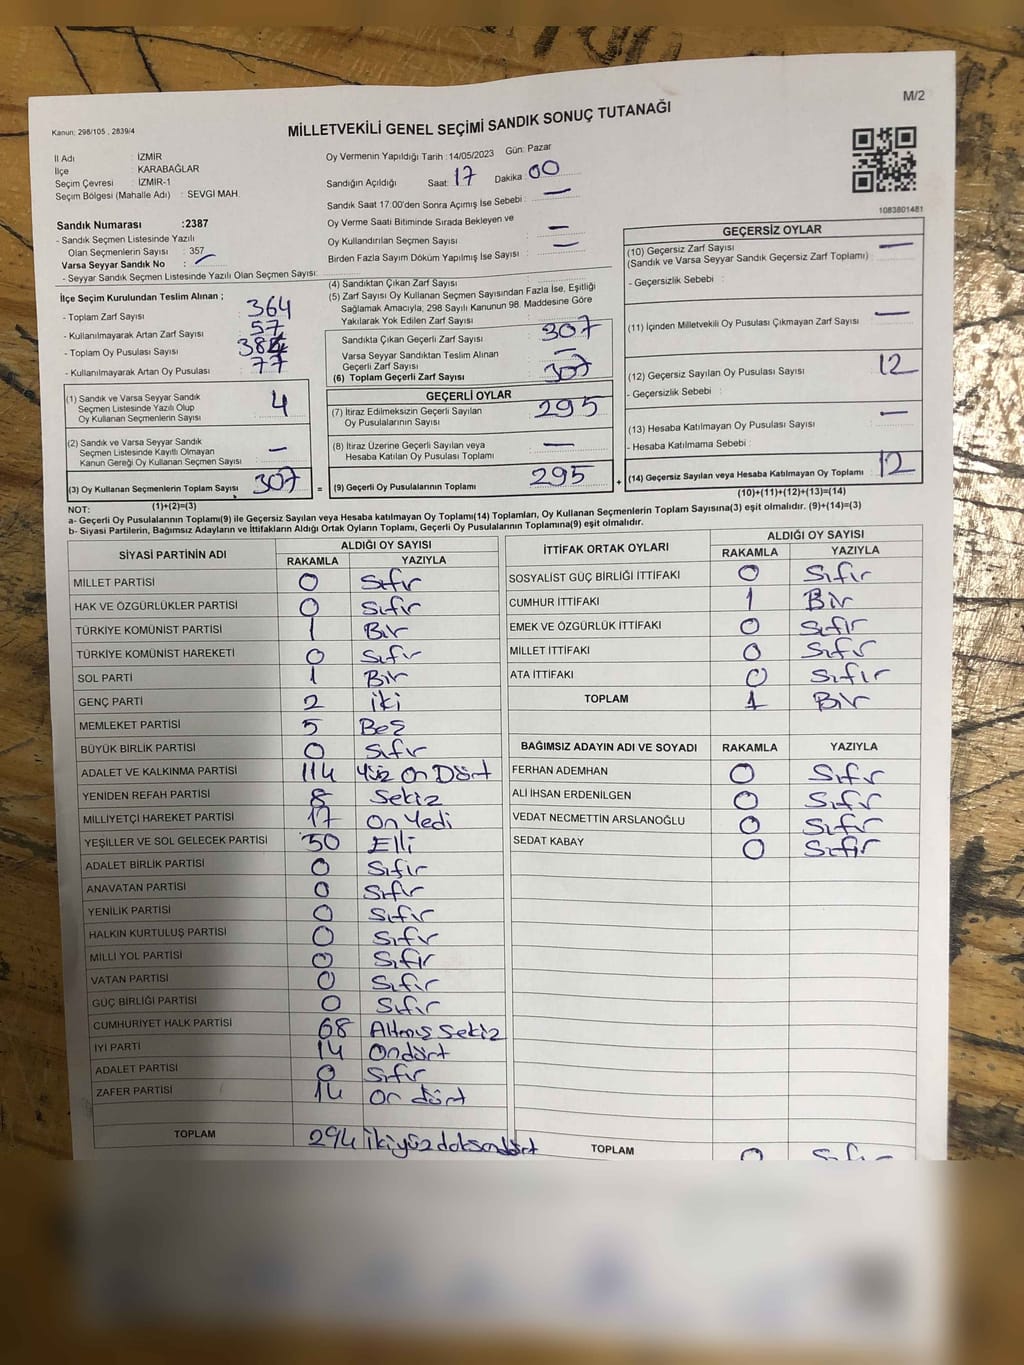 M/2
Kanun: 298/105 , 2839/4
MİLLETVEKİLİ GENEL SEÇİMİ SANDIK SONUÇ TUTANAĞI
İl Adı : İZMİR
İlçe : KARABAĞLAR
Seçim Çevresi : İZMİR-1
Seçim Bölgesi (Mahalle Adı) : SEVGİ MAH.
Sandık Numarası :2387
- Sandık Seçmen Listesinde Yazılı
Olan Seçmenlerin Sayısı : 357
Varsa Seyyar Sandık No : —
- Seyyar Sandık Seçmen Listesinde Yazılı Olan Seçmen Sayısı:
Oy Vermenin Yapıldığı Tarih :14/05/2023 Gün: Pazar
Sandığın Açıldığı Saat: 17 Dakika 00
Sandık Saat 17:00'den Sonra Açımış İse Sebebi : —
Oy Verme Saati Bitiminde Sırada Bekleyen ve
Oy Kullandırılan Seçmen Sayısı : —
Birden Fazla Sayım Döküm Yapılmış İse Sayısı : —
1083801481
İlçe Seçim Kurulundan Teslim Alınan ;
- Toplam Zarf Sayısı : 364
- Kullanılmayarak Artan Zarf Sayısı : 57
- Toplam Oy Pusulası Sayısı : 384
- Kullanılmayarak Artan Oy Pusulası : 77
(1) Sandık ve Varsa Seyyar Sandık
Seçmen Listesinde Yazılı Olup
Oy Kullanan Seçmenlerin Sayısı : 4
(2) Sandık ve Varsa Seyyar Sandık
Seçmen Listesinde Kayıtlı Olmayan
Kanun Gereği Oy Kullanan Seçmen Sayısı : —
(3) Oy Kullanan Seçmenlerin Toplam Sayısı : 307
(1)+(2)=(3)
(4) Sandıktan Çıkan Zarf Sayısı :
(5) Zarf Sayısı Oy Kullanan Seçmen Sayısından Fazla İse, Eşitliği
Sağlamak Amacıyla, 298 Sayılı Kanunun 98. Maddesine Göre
Yakılarak Yok Edilen Zarf Sayısı :
Sandıkta Çıkan Geçerli Zarf Sayısı : 307
Varsa Seyyar Sandıktan Teslim Alınan
Geçerli Zarf Sayısı : —
(6) Toplam Geçerli Zarf Sayısı : 307
GEÇERLİ OYLAR
(7) İtiraz Edilmeksizin Geçerli Sayılan
Oy Pusulalarının Sayısı : 295
(8) İtiraz Üzerine Geçerli Sayılan veya
Hesaba Katılan Oy Pusulası Toplamı : —
= (9) Geçerli Oy Pusulalarının Toplamı : 295
GEÇERSİZ OYLAR
(10) Geçersiz Zarf Sayısı : —
(Sandık ve Varsa Seyyar Sandık Geçersiz Zarf Toplamı)
- Geçersizlik Sebebi :
(11) İçinden Milletvekili Oy Pusulası Çıkmayan Zarf Sayısı : —
(12) Geçersiz Sayılan Oy Pusulası Sayısı : 12
- Geçersizlik Sebebi :
(13) Hesaba Katılmayan Oy Pusulası Sayısı : —
- Hesaba Katılmama Sebebi :
+ (14) Geçersiz Sayılan veya Hesaba Katılmayan Oy Toplamı : 12
(10)+(11)+(12)+(13)=(14)
NOT:
a- Geçerli Oy Pusulalarının Toplamı(9) ile Geçersiz Sayılan veya Hesaba katılmayan Oy Toplamı(14) Toplamları, Oy Kullanan Seçmenlerin Toplam Sayısına(3) eşit olmalıdır. (9)+(14)=(3)
b- Siyasi Partilerin, Bağımsız Adayların ve İttifakların Aldığı Ortak Oyların Toplamı, Geçerli Oy Pusulalarının Toplamına(9) eşit olmalıdır.
SİYASİ PARTİNİN ADI ALDIĞI OY SAYISI
RAKAMLA YAZIYLA
MİLLET PARTİSİ 0 Sıfır
HAK VE ÖZGÜRLÜKLER PARTİSİ 0 Sıfır
TÜRKİYE KOMÜNİST PARTİSİ 1 Bir
TÜRKİYE KOMÜNİST HAREKETİ 0 Sıfır
SOL PARTİ 1 Bir
GENÇ PARTİ 2 iki
MEMLEKET PARTİSİ 5 Beş
BÜYÜK BİRLİK PARTİSİ 0 Sıfır
ADALET VE KALKINMA PARTİSİ 114 Yüz On Dört
YENİDEN REFAH PARTİSİ 8 Sekiz
MİLLİYETÇİ HAREKET PARTİSİ 17 On Yedi
YEŞİLLER VE SOL GELECEK PARTİSİ 50 Elli
ADALET BİRLİK PARTİSİ 0 Sıfır
ANAVATAN PARTİSİ 0 Sıfır
YENİLİK PARTİSİ 0 Sıfır
HALKIN KURTULUŞ PARTİSİ 0 Sıfır
MİLLİ YOL PARTİSİ 0 Sıfır
VATAN PARTİSİ 0 Sıfır
GÜÇ BİRLİĞİ PARTİSİ 0 Sıfır
CUMHURİYET HALK PARTİSİ 68 Altmış Sekiz
İYİ PARTİ 14 Ondört
ADALET PARTİSİ 0 Sıfır
ZAFER PARTİSİ 14 On dört
TOPLAM 294 ikiyüzdoksandört
İTTİFAK ORTAK OYLARI ALDIĞI OY SAYISI
RAKAMLA YAZIYLA
SOSYALİST GÜÇ BİRLİĞİ İTTİFAKI 0 Sıfır
CUMHUR İTTİFAKI 1 Bir
EMEK VE ÖZGÜRLÜK İTTİFAKI 0 Sıfır
MİLLET İTTİFAKI 0 Sıfır
ATA İTTİFAKI 0 Sıfır
TOPLAM 1 Bir
BAĞIMSIZ ADAYIN ADI VE SOYADI RAKAMLA YAZIYLA
FERHAN ADEMHAN 0 Sıfır
ALİ İHSAN ERDENİLGEN 0 Sıfır
VEDAT NECMETTİN ARSLANOĞLU 0 Sıfır
SEDAT KABAY 0 Sıfır
TOPLAM 0 Sıfır